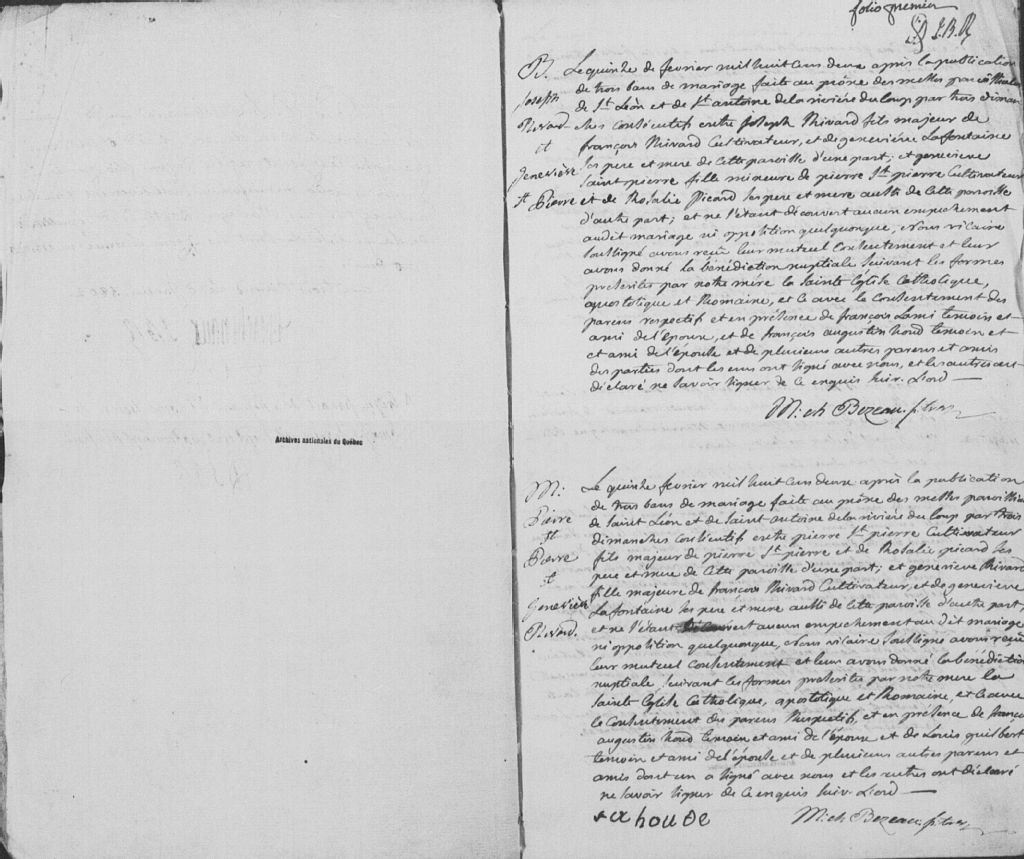 Archives nationales du Québec
folio premier
J.B.R
B.
Joseph
Rivard
et
Genevieve
St Pierre
Le quinze de fevrier mil huit cens deux après la publication
de trois bans de mariage faite au prône des messes paroissiales
de St Léon et de St antoine de la riviére du loup par trois diman
ches consécutifs entre joseph Rivard fils majeur de
françois Rivard Cultivateur, et de geneviéve Lafontaine
ses pere et mere de cette paroisse d'une part; et genevieve
saint pierre fille mineure de pierre St pierre Cultivateur
et de Rosalie Picard ses pere et mere aussi de cette paroisse
d'autre part; et ne s'étant découvert aucun empechement
audit mariage ni opposition quelquonque, Nous vicaire
soussigné avons reçu leur mutuel Consentement et leur
avons donné la bénédiction nuptiale suivant les formes
prescrites par notre mére la Sainte Eglise Catholique,
apostolique et Romaine, et ce avec le Consentement des
parens respectif et en présence de françois Lami temoin et
ami de l'époux, et de françois augustin houd temoin et
et ami de l'épouse et de plusieurs autres parens et amis
des parties dont les uns ont signé avec nous, et les autres ont
déclaré ne savoir signer de ce enquis suiv. L'ord
M. ch Bezeau. ptre
M:
Pierre
St
Pierre
et
Genevieve
Rivard.
Le quinze fevrier mil huit cens deux après la publication
de trois bans de mariage faite au prône des messes paroissia
de Saint Léon et de Saint antoine de la riviére du loup par trois
dimanches consécutifs entre pierre St pierre Cultivateur
fils majeur de pierre St pierre et de Rosalie picard ses
pere et mere de cette paroisse d'une part; et genevieve Rivard
fille majeure de françois Rivard Cultivateur, et de genevieve
Lafontaine ses pere et mere aussi de cette paroisse d'autre part,
et ne s'étant découvert aucun empechement au dit mariage
ni opposition quelquonque, Nous vicaire soussigné avons reçu
leur mutuel Consentement et leur avons donné la bénédiction
nuptiale suivant les formes prescrites par notre mere la
Sainte Eglise Catholique, apostolique et Romaine, et ce avec
le Consentement des parens Respectif, et en présence de françois
augustin houd temoin et ami de l'époux et de Louis guilbert
temoin et ami de l'épouse et de plusieurs autres parens et
amis dont un a signé avec nous et les autres ont déclaré
ne savoir signer de ce enquis suiv. L'ord
houde
M. ch Bezeau. ptre